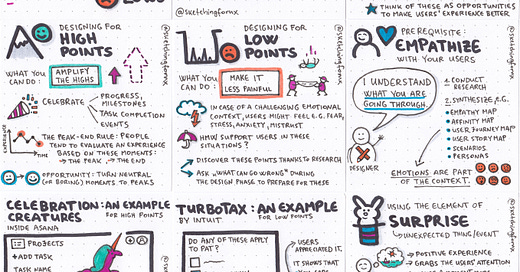 @sketchingforux
THINK OF THESE AS OPPORTUNITIES
TO MAKE USERS' EXPERIENCE BETTER
DESIGNING FOR
HIGH
POINTS
@sketchingforux
WHAT YOU
CAN DO:
AMPLIFY
THE HIGHS
CELEBRATE
PROGRESS,
MILESTONES
TASK COMPLETION
EVENTS
EXPERIENCE
TIME
THE PEAK-END RULE: PEOPLE
TEND TO EVALUATE AN EXPERIENCE
BASED ON THESE MOMENTS:
→ THE PEAK → THE END
OPPORTUNITY: TURN NEUTRAL
(OR BORING) MOMENTS TO PEAKS
DESIGNING FOR
LOW
POINTS
@sketchingforux
WHAT YOU
CAN DO:
MAKE IT
LESS PAINFUL
IN CASE OF A CHALLENGING EMOTIONAL
CONTEXT, USERS MIGHT FEEL E.G. FEAR,
STRESS, ANXIETY, MISTRUST
HMW SUPPORT USERS IN THESE
SITUATIONS?
DISCOVER THESE POINTS THANKS TO RESEARCH
ASK "WHAT CAN GO WRONG" DURING
THE DESIGN PHASE TO PREPARE FOR THESE
PREREQUISITE:
EMPATHIZE
WITH YOUR USERS
@sketchingforux
I UNDERSTAND
WHAT YOU ARE
GOING THROUGH.
DESIGNER
1. CONDUCT
RESEARCH
2. SYNTHESIZE, E.G.
• EMPATHY MAP
• AFFINITY MAP
• USER JOURNEY MAP
• USER STORY MAP
• SCENARIOS
• PERSONAS
EMOTIONS ARE PART
OF THE CONTEXT.
CELEBRATION: AN EXAMPLE
CREATURES FOR HIGH POINTS
INSIDE ASANA
@sketchingforux
PROJECTS
+ADD TASK
TASK NAME
TURBOTAX: AN EXAMPLE
BY INTUIT FOR LOW POINTS
DO ANY OF THESE APPLY
TO PAT?
USERS
APPRECIATED IT,
IT SHOWS THAT
@sketchingforux
USING THE ELEMENT OF
SURPRISE
→ UNEXPECTED THING/EVENT
POSITIVE EXPERIENCE
GRABS THE USERS' ATTENTION